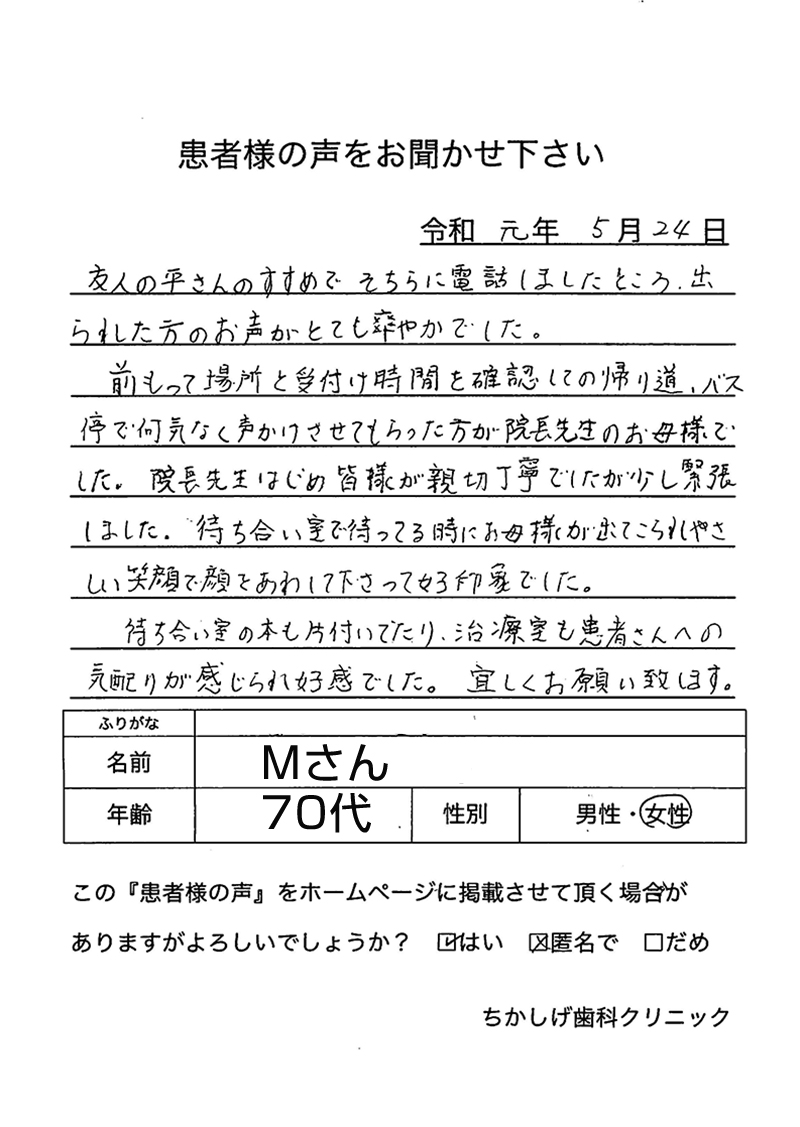 患者様の声をお聞かせ下さい
令和 元年 5月24日
友人の平さんのすすめで そちらに電話しましたところ、出
られした方のお声がとても爽やかでした。
前もって場所と受付け時間を確認しての帰り道、バス
停で何気なく声かけさせてもらった方が院長先生のお母様で
した。院長先生はじめ皆様が親切丁寧でしたが少し緊張
しました。待ち合い室で待ってる時にお母様が出てこられやさ
しい笑顔で顔をあわして下さって好印象でした。
待ち合い室の本も片付いてたり、治療室も患者さんへの
気配りが感じられ好感でした。宜しくお願い致します。
ふりがな
名前 Mさん
年齢 70代 性別 男性・女性
この『患者様の声』をホームページに掲載させて頂く場合が
ありますがよろしいでしょうか？ ☑はい ☒匿名で □だめ
ちかしげ歯科クリニック